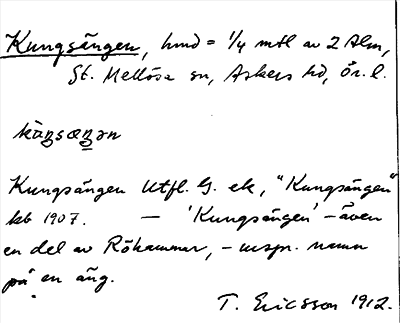 Kungsängen, hmd = 1/4 mtl av 2 Alm,
St. Mellösa sn, Askers hd, Ör. l.
Kungsängen Utfl. G. ek, "Kungsängen"
kb 1907. — 'Kungsängen' - även
en del av Rökammar, - urspr. namn
på en äng.
T. Ericsson 1912.